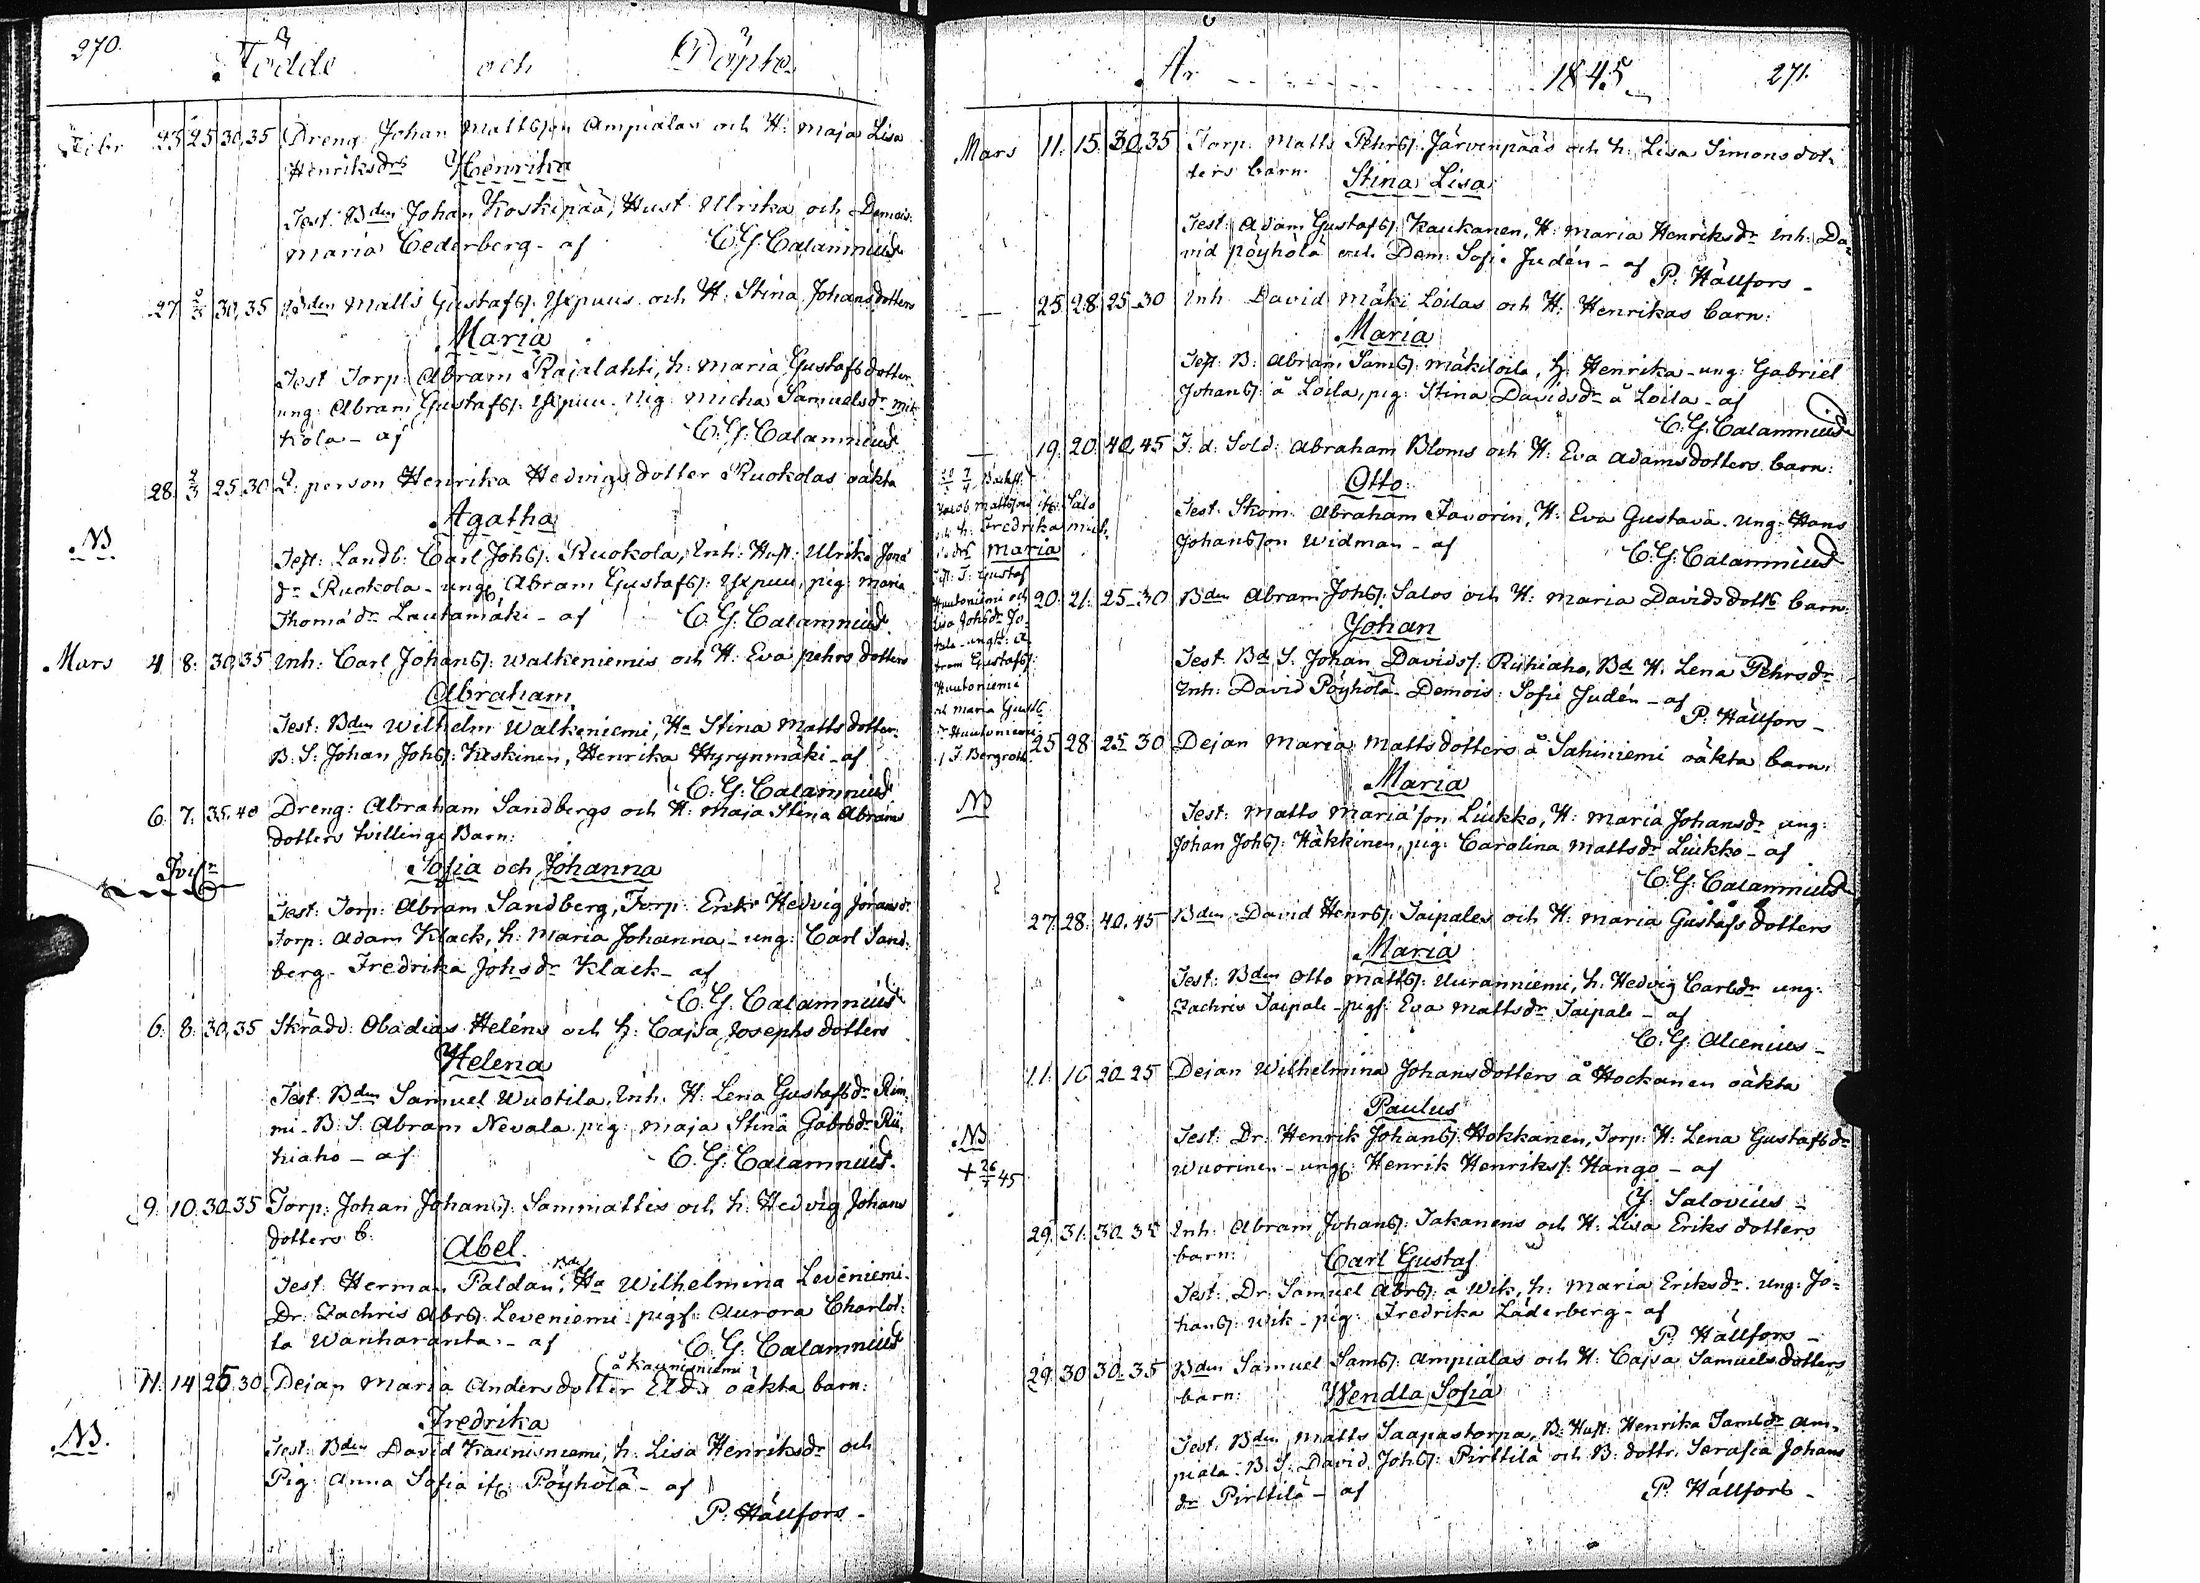 270. Födde och Döpte
Febr 23 25 30,35 Dreng Johan Mattsson Ampialas och H: Maja Lisa
Henriksdrs Henrika
Test: Bden Johan Koskipää, Hust Ulrika och Demois:
Maria Cederberg - af C.G. Calamnius
27 2/3 30,35 Bden Matts Gustafss: Yxpuus och H: Stina Johansdotters
Maria
Test Torp: Abram Rajalahti, h: Maria Gustafsdotter,
ung: Abram Gustafss: Yxpuu. Pig: Micha Samuelsdr Mik-
kola - af C.G. Calamnius
28. 2/3 25,30 L: person Henrika Hedvigsdotter Ruokolas oäkta
Agatha
NB
Test: Landb: Carl Johss: Ruokola, Inh: Hust: Ulrika Jona
dr Ruokola - ungk Abram Gustafss: Yxpuu, pig: Maria
Thomædr Lautamäki - af C.G. Calamnius.
Mars 4 8: 30,35 Inh: Carl Johanss: Walkeniemis och H: Eva Pehrsdotters
Abraham
Test: Bden Wilhelm Walkeniemi, Ha Stina Mattsdotter,
B: S: Johan Johss: Keskinen, Henrika Hyrynmäki - af
C.G. Calamnius
6: 7: 35,40 Dreng: Abraham Sandbergs och H: Maja Stina Abrams
dotters tvillinge Barn:
Sofia och Johanna
Test: Torp: Abram Sandberg, Torp: Enka Hedvig Joransdr
Torp: Adam Klack, h: Maria Johanna - ung: Carl Sand-
berg. Fredrika Johsdr Klack - af
C.G. Calamnius
6: 8: 30,35 Skrädd: Obadias Heléns och h: Cajsa Josephsdotters
Helena
Test: Bden Samuel Wuotila, Inh. H: Lena Gustafsdr Rim-
mi. B: S: Abram Nevala. pig: Maja Stina Gabrsdr Rii-
hiaho - af C.G. Calamnius.
9: 10 30.35 Torp: Johan Johanss: Sammattis och h: Hedvig Johans
dotters b: Abel.
Test: Herman Paldan, Bde Ha Wilhelmina Leveniemi.
Dr. Zachris Abrss: Leveniemi. pigf: Aurora Charlot-
ta Wanharanta: - af C.G. Calamnius
å Kaunisniemi
11: 14 25 30 Dejan Maria Andersdotter oäkta barn:
Fredrika
NB.
Test: Bden David Kaunisniemi, h: Lisa Henriksdr och
Pig: Anna Sofia Pöyhölä - af
P. Hällfors -
År 1845 271.
Mars 11. 15. 30,35 Torp: Matts Pehrss: Järvenpääs och h: Lisa Simonsdot-
ters barn. Stina Lisa
Test: Adam Gustafss: Kaukanen, H: Maria Henriksdr Inh: Da-
vid Pöyhölä och Dem: Sofie Judén - af P. Hällfors -
25 28 25 30 Inh David Mäki Loilas och H: Henrikas barn:
Maria
Test: B: Abram Samss: Mäkiloila, H: Henrika - ung: Gabriel
Johanss: å Loila, pig: Stina Davidsdr å Loila - af
C.G. Calamnius
19. 20 40,45 F. d. Sold: Abraham Bloms och H: Eva Adamsdotters barn:
Otto
Test: Skom: Abraham Favorin, H: Eva Gustava. Ung: Hans
Johansson Widman - af C.G. Calamnius
Jacob Mattsson Salo
och h: Fredrika Mich
Maria
T: Gustaf
Huutoniemi och
Lisa Johsdr Jo-
A-
bram Gustafss:
Huutoniemi
och Maria
Huutoniemi
J. Bergroth
20. 21. 25-30 Bden Abram Johss: Salos och H: Maria Davidsdotts barn:
Johan
Test. Bd S. Johan Davidss: Riihiaho, Bd H: Lena Pehrsdr
Inh: David Pöyhölä. Demois: Sofie Judén - af
P. Hällfors -
25 28 25 30 Dejan Maria Mattsdotters å Sahiniemi oäkta barn,
Maria
NB
Test: Matts Mariason Liukko, H: Maria Johansdr ung:
Johan Johss: Häkkinen, pig: Carolina Mattsdr Liukko - af
C.G. Calamnius
27. 28. 40.45 Bden David Henrss: Taipales och H: Maria Gustafsdotters
Maria
Test: Bden Otto Mattss: Uuranniemi, h: Hedvig Carlsdr ung:
Zachris Taipale - pigf: Eva Mattsdr Taipale - af
C.G. Alcenius -
11. 16 20-25 Dejan Wilhelmina Johansdotters å Hockanen oäkta
Paulus
NB
+ 26/7 45
Test: Dr: Henrik Johanss: Hokkanen, Torp: H: Lena Gustafsdr
Wuorinen - ungk: Henrik Henrikss: Hango - af
G. Salovius -
29. 31. 30-35 Inh: Abram Johanss: Takanens och H: Lisa Eriksdotters
barn: Carl Gustaf
Test: Dr: Samuel Abrss: å Wik, h: Maria Eriksdr. Ung: Jo-
hanss: Wik - pig: Fredrika Läderberg - af
P. Hällfors -
29: 30 30-35 Bden Samuel Samss: Ampialas och H: Cajsa Samuelsdotters
barn: Wendla Sofia
Test: Bden Matts Saapastorpa, B: Hust: Henrika Samsdr Am-
piala. B: S: David Johss: Pirttilä och B: dottr. Serafia Johans
dr Pirttilä - af P. Hällfors -